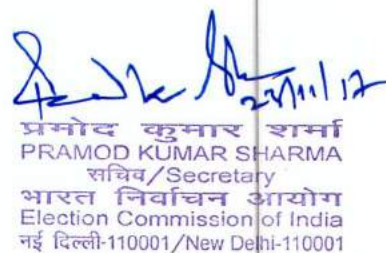 23/11/17
प्रमोद कुमार शर्मा
PRAMOD KUMAR SHARMA
सचिव/Secretary
भारत निर्वाचन आयोग
Election Commission of India
नई दिल्ली-110001/New Delhi-110001